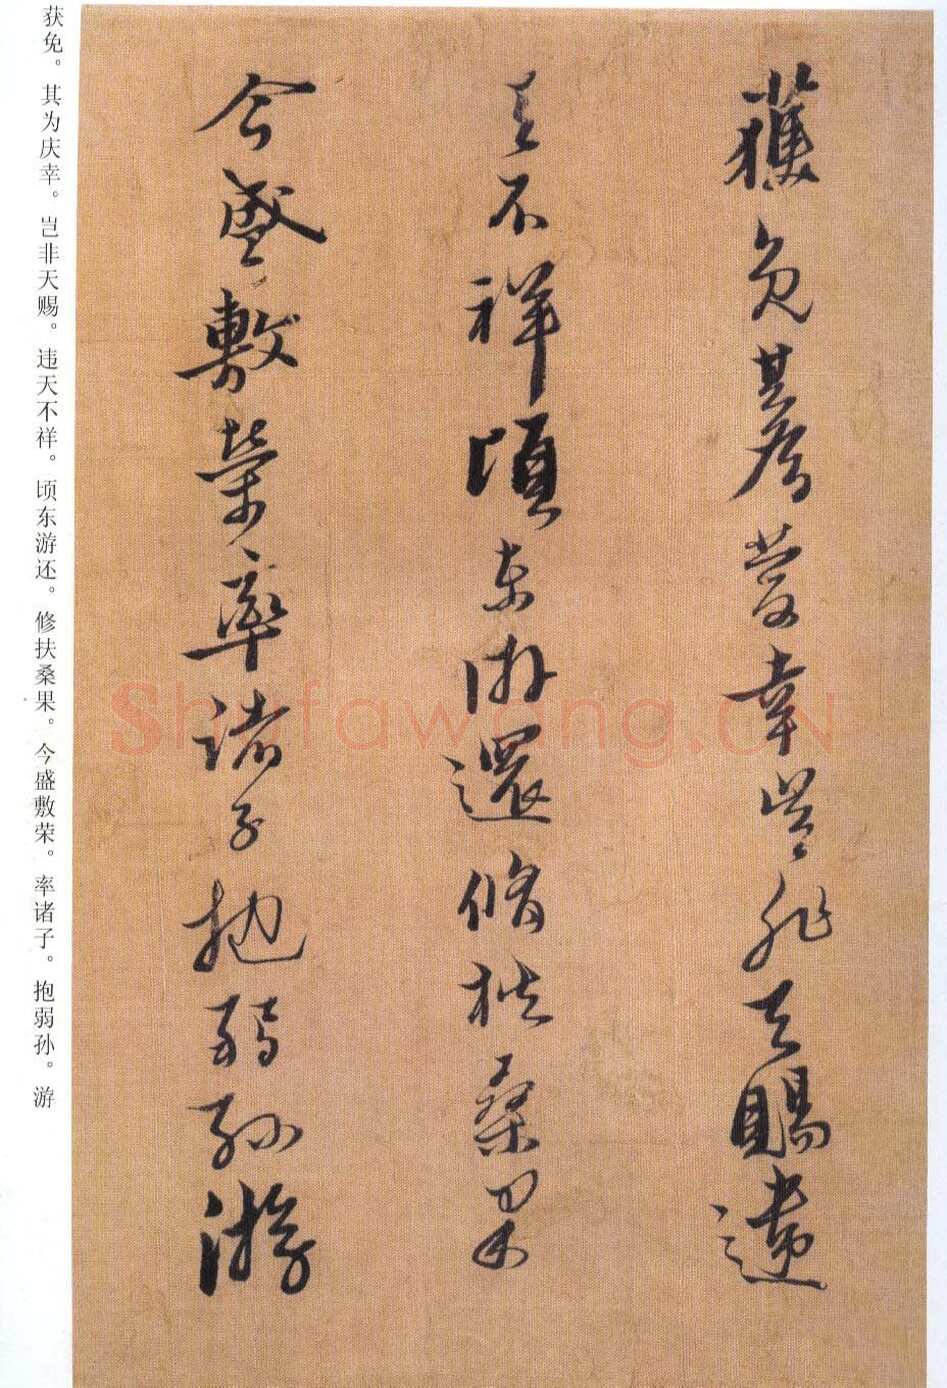 獲免其為慶幸豈非天賜違
天不祥頃東游還脩扶桑果
今盛敷榮率諸子抱弱孫游
获免。其为庆幸。岂非天赐。违天不祥。顷东游还。修扶桑果。今盛敷荣。率诸子。抱弱孙。游
Shufawang.CN